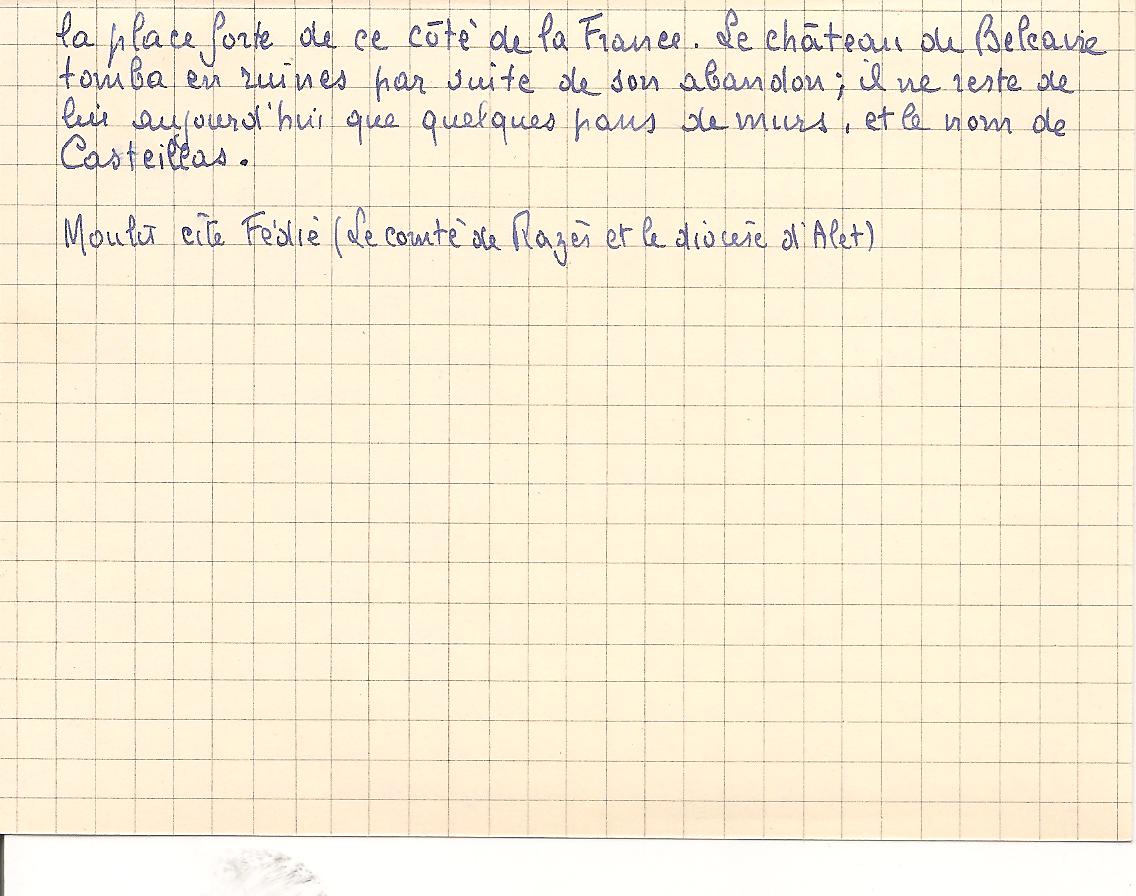 la place forte de ce côté de la France. Le château de Belcavie
tomba en ruines par suite de son abandon ; il ne reste de
lui aujourd'hui que quelques pans de murs, et le nom de
Casteillas.
Moulis cite Fédié (Le comté de Razès et le diocèse d'Alet)